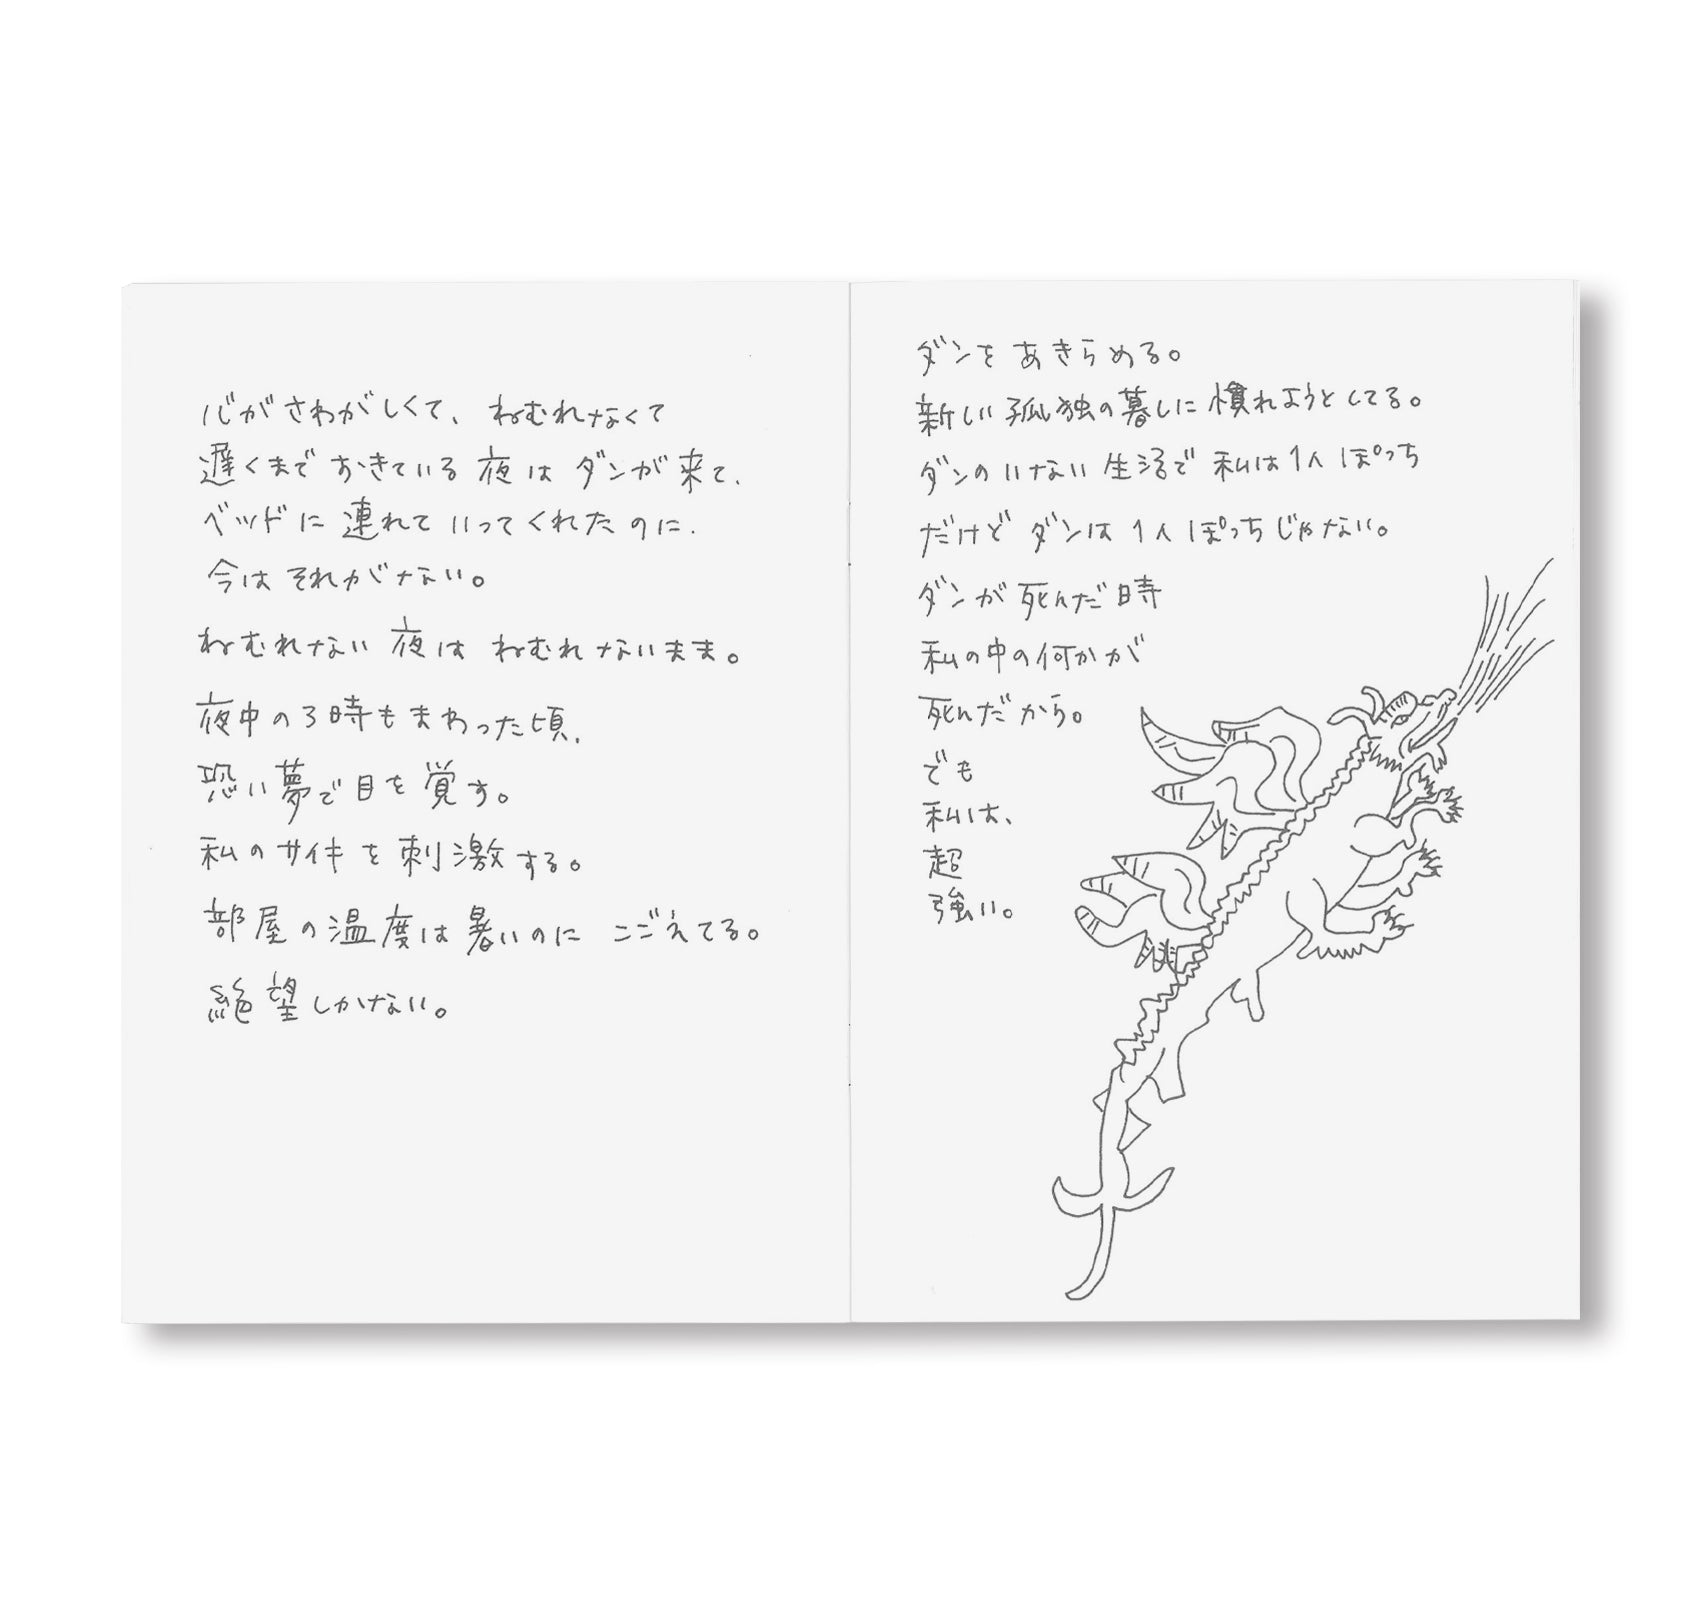 心がさわがしくて、ねむれなくて
遅くまでおきている夜はダンが来て、
ベッドに連れていってくれたのに、
今はそれがない。
ねむれない夜はねむれないまま。
夜中の3時もまわった頃、
恐い夢で目を覚す。
私のサイキを刺激する。
部屋の温度は暑いのにこごえてる。
絶望しかない。
ダンをあきらめる。
新しい孤独の暮しに慣れようとしてる。
ダンのいない生活で私は1人ぽっち
だけどダンは1人ぽっちじゃない。
ダンが死んだ時
私の中の何かが
死んだから。
でも
私は、
超
強い。